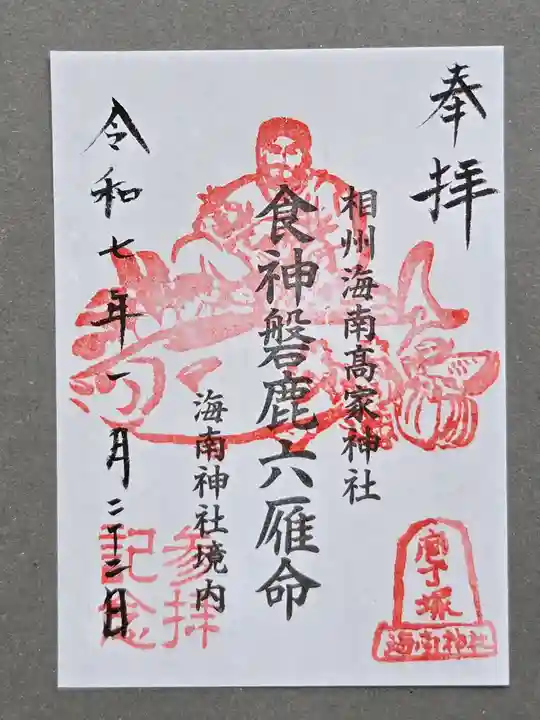 奉拝
相州海南髙家神社
食神磐鹿六雁命
海南神社境内
令和七年一月二十二日
参拝
記念
庖丁塚
海南神社